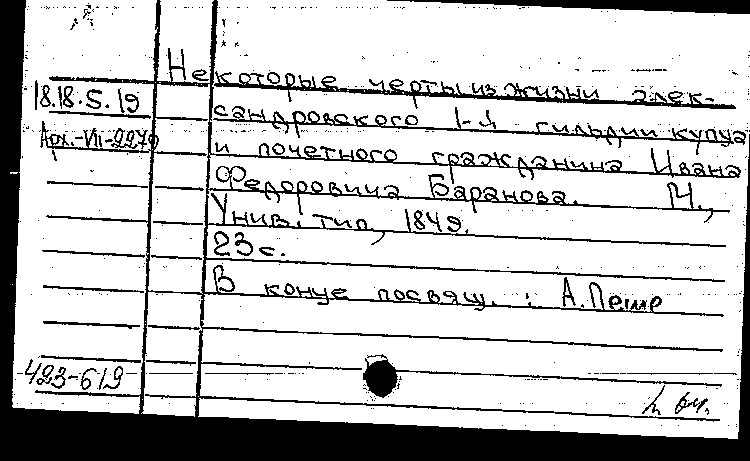 Некоторые черты из жизни алек-
18.18.5.19
сандровского 1-й гильдии купца
Арх.-VII-2279
и почетного гражданина Ивана
Федоровича Баранова. М.,
Унив. тип., 1849.
23 с.
В конце посвящ.: А. Пеше
423-619